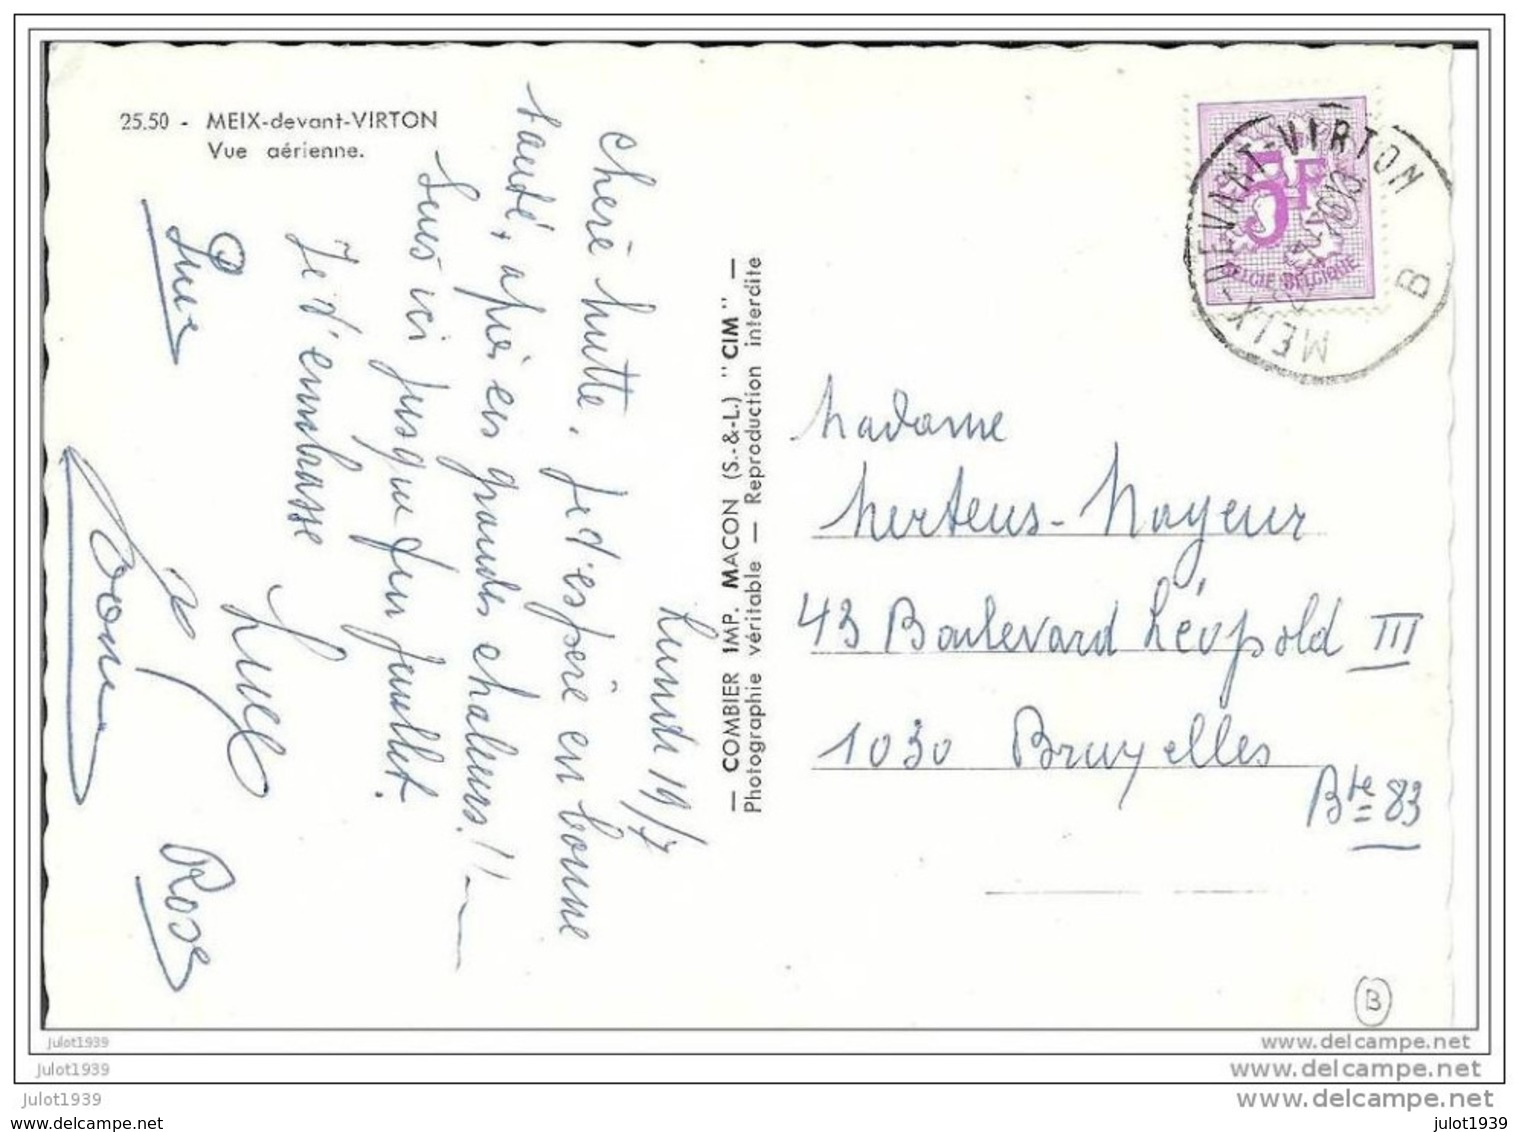 25.50 - MEIX-devant-VIRTON
Vue aérienne.
Lundi 19/7
Chère hutte. Je t'espère en bonne
santé, après ces grandes chaleurs!!
Suis ici jusque fin Juillet.
Je t'embrasse
Rose
— COMBIER IMP. MACON (S.-&-L.) "CIM" —
Photographie véritable — Reproduction interdite
5F
BELGIE BELGIQUE
MEIX-DEVANT-VIRTON
B
Madame
Mertens-Noyeur
43 Boulevard Léopold III
1030 Bruxelles
Bte 83
B
julot1939
www.delcampe.net
julot1939
www.delcampe.net
julot1939
www.delcampe.net
www.delcampe.net
julot1939